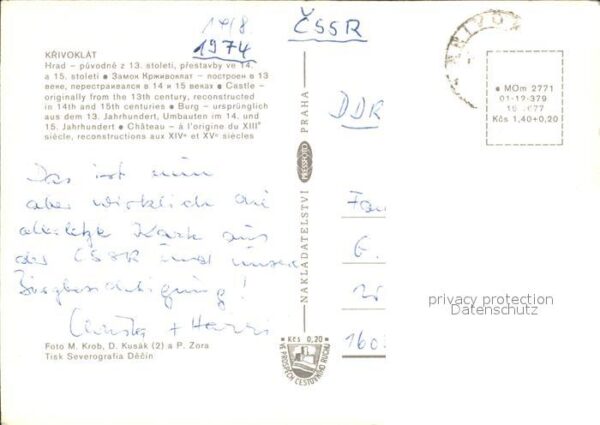 14/8.
1974
ČSSR
KŘIVOKLÁT
Hrad – původně z 13. století, přestavby ve 14.
a 15. století ● Замок Крживоклат – построен в 13
веке, перестраивался в 14 и 15 веках ● Castle –
originally from the 13th century, reconstructed
in 14th and 15th centuries ● Burg – ursprünglich
aus dem 13. Jahrhundert, Umbauten im 14. und
15. Jahrhundert ● Château – à l'origine du XIIIe
siècle, reconstructions aux XIVe et XVe siècles
Das ist nun
aber wirklich die
allerletzte Karte aus
der ČSSR und unsere
Burgbesichtigung!
Christa + Harri
Foto M. Krob, D. Kusák (2) a P. Zora
Tisk Severografia Děčín
NAKLADATELSTVÍ PRESSFOTO PRAHA
Kčs 0,20
VE PROSPĚCH CESTOVNÍHO RUCHU
● MOm 2771
01-12-379
Kčs 1,40+0,20
DDR
Fam
G.
1603
privacy protection
Datenschutz